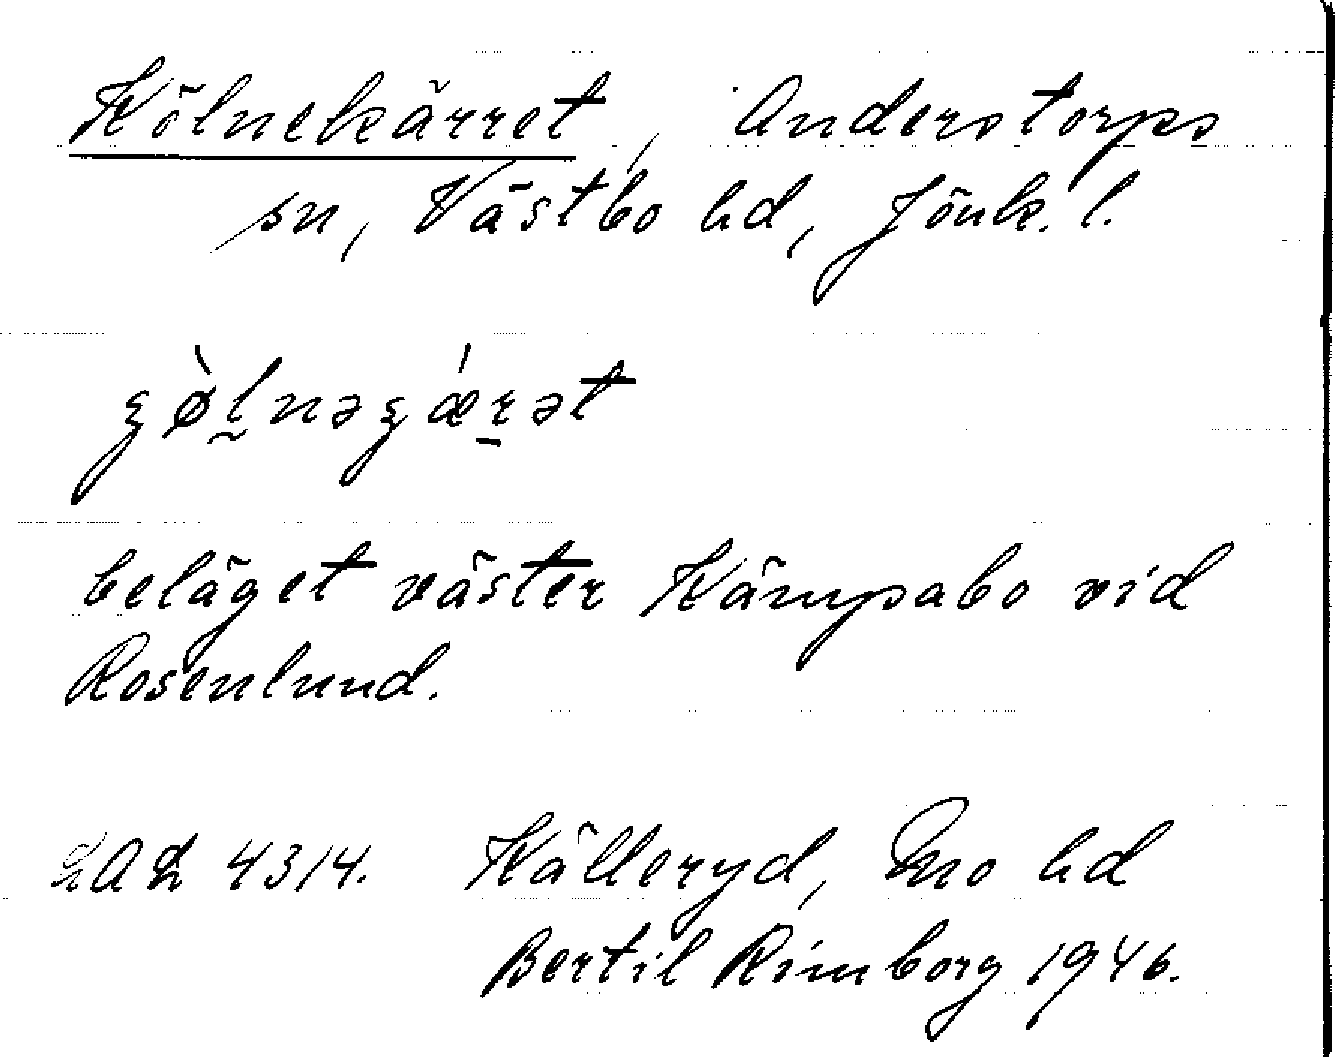 Kölnekärret, Anderstorps
sn, Västbo hd, Jönk. l.
beläget väster Kämpsabo vid
Rosenlund.
4314. Källeryd, Mo hd
Bertil Rimborg 1946.